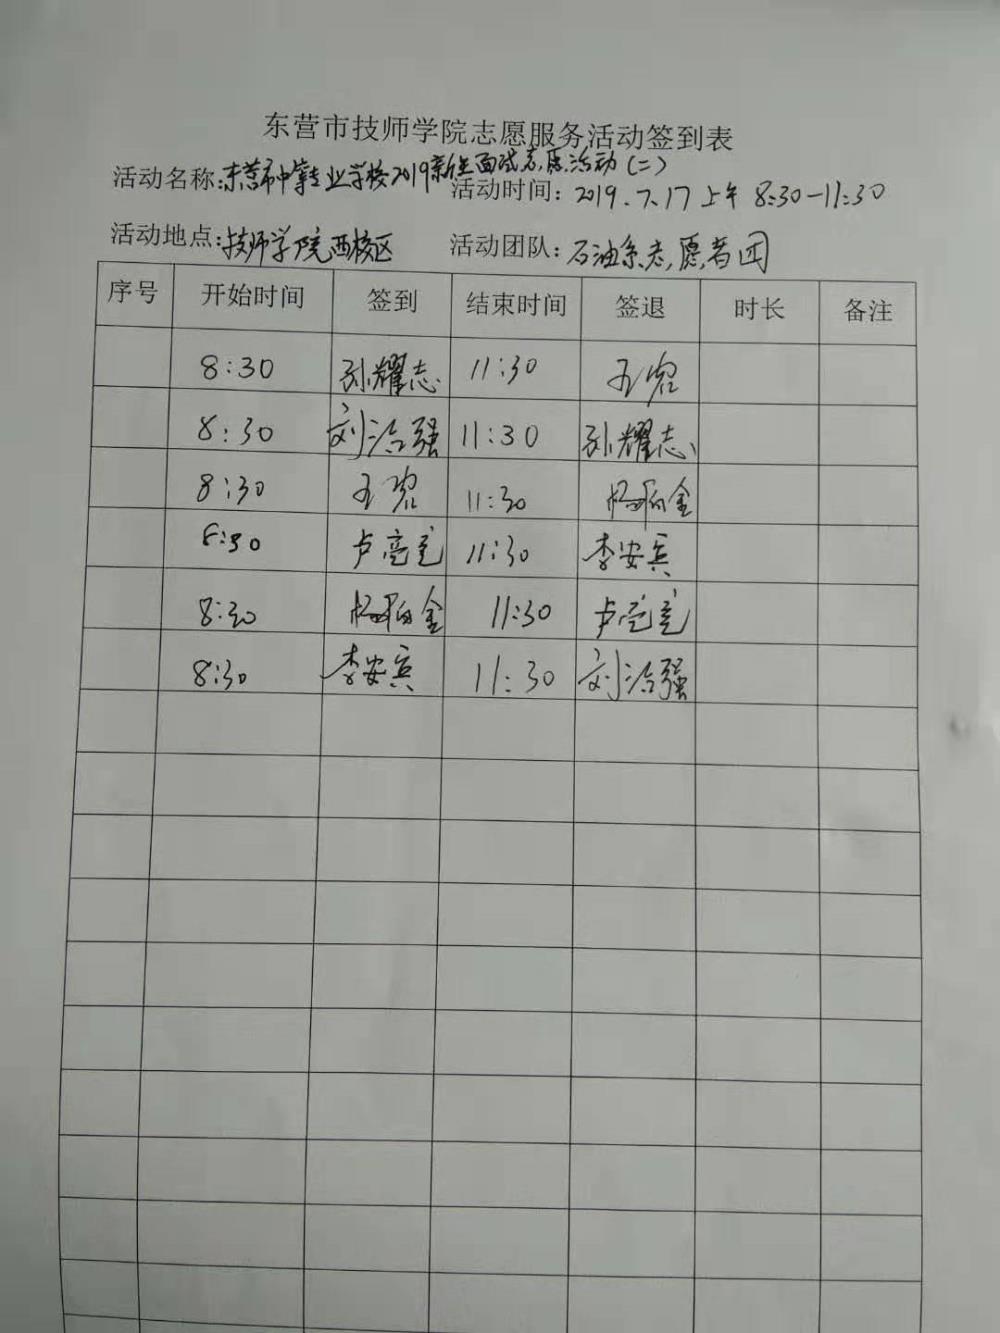 东营市技师学院志愿服务活动签到表
活动名称:东营市中等专业学校2019新生面试志愿活动(二)
活动时间: 2019.7.17 上午 8:30-11:30
活动地点:技师学院西校区 活动团队:石油系志愿者团
序号 开始时间 签到 结束时间 签退 时长 备注
8:30 孙耀志 11:30 王
8:30 刘治强 11:30 孙耀志
8:30 王 11:30 金
8:30 卢亮亮 11:30 李安兵
8:30 金 11:30 卢亮亮
8:30 李安兵 11:30 刘治强